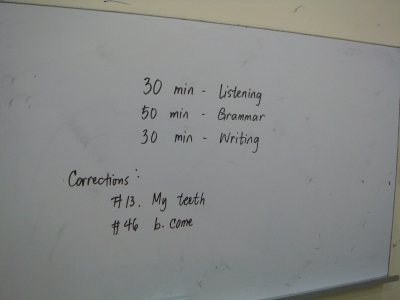 30 min - Listening
50 min - Grammar
30 min - Writing
Corrections:
#13. My teeth
#46 b. come